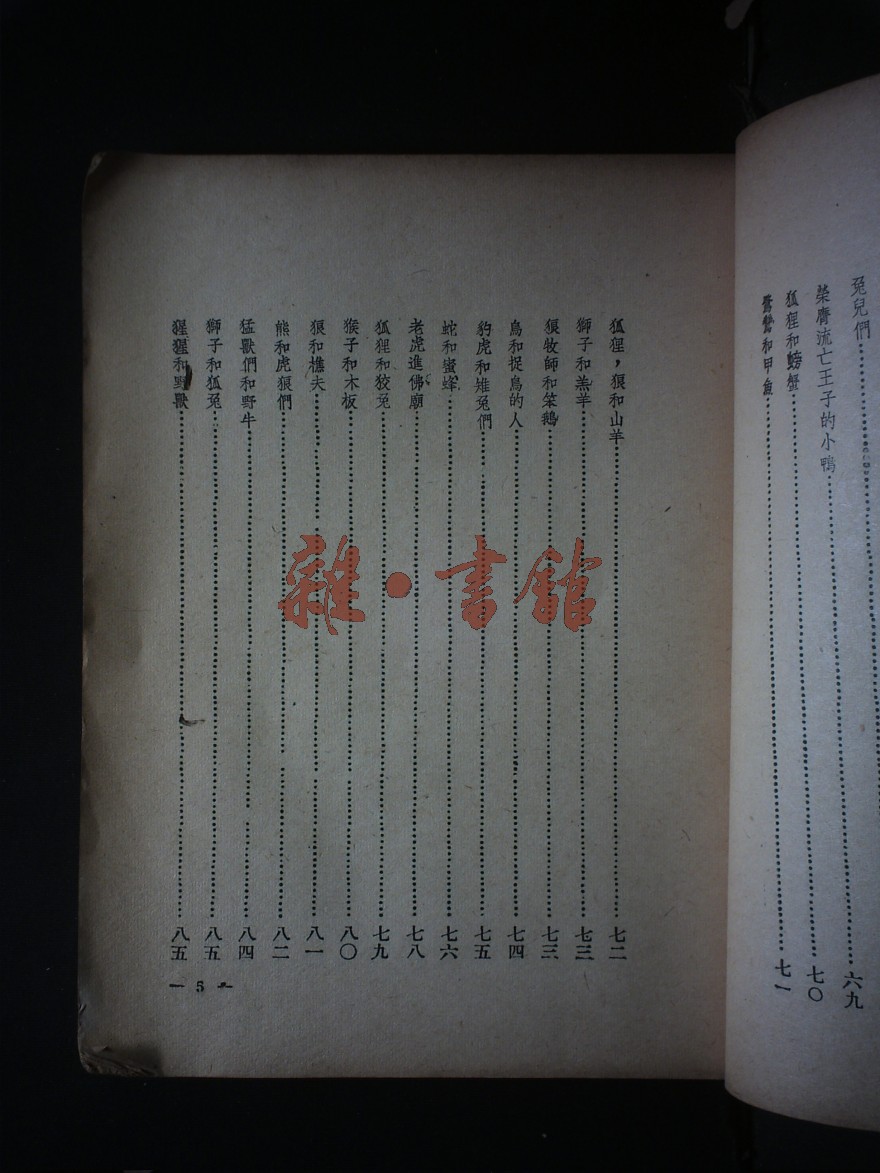 兔兒們……六九
榮膺流亡王子的小鴨……七〇
狐狸和螃蟹……七一
和甲魚……七一
狐狸，狼和山羊……七二
獅子和羔羊……七三
狼牧師和笨鵝……七三
鳥和捉鳥的人……七四
豹虎和雉兔們……七五
蛇和蜜蜂……七六
老虎進佛廟……七八
狐狸和狡兔……七九
猴子和木板……八〇
狼和樵夫……八一
熊和虎狼們……八二
猛獸們和野牛……八四
獅子和狐兔……八五
猩猩和野獸……八五
— 5 —
雜·書館